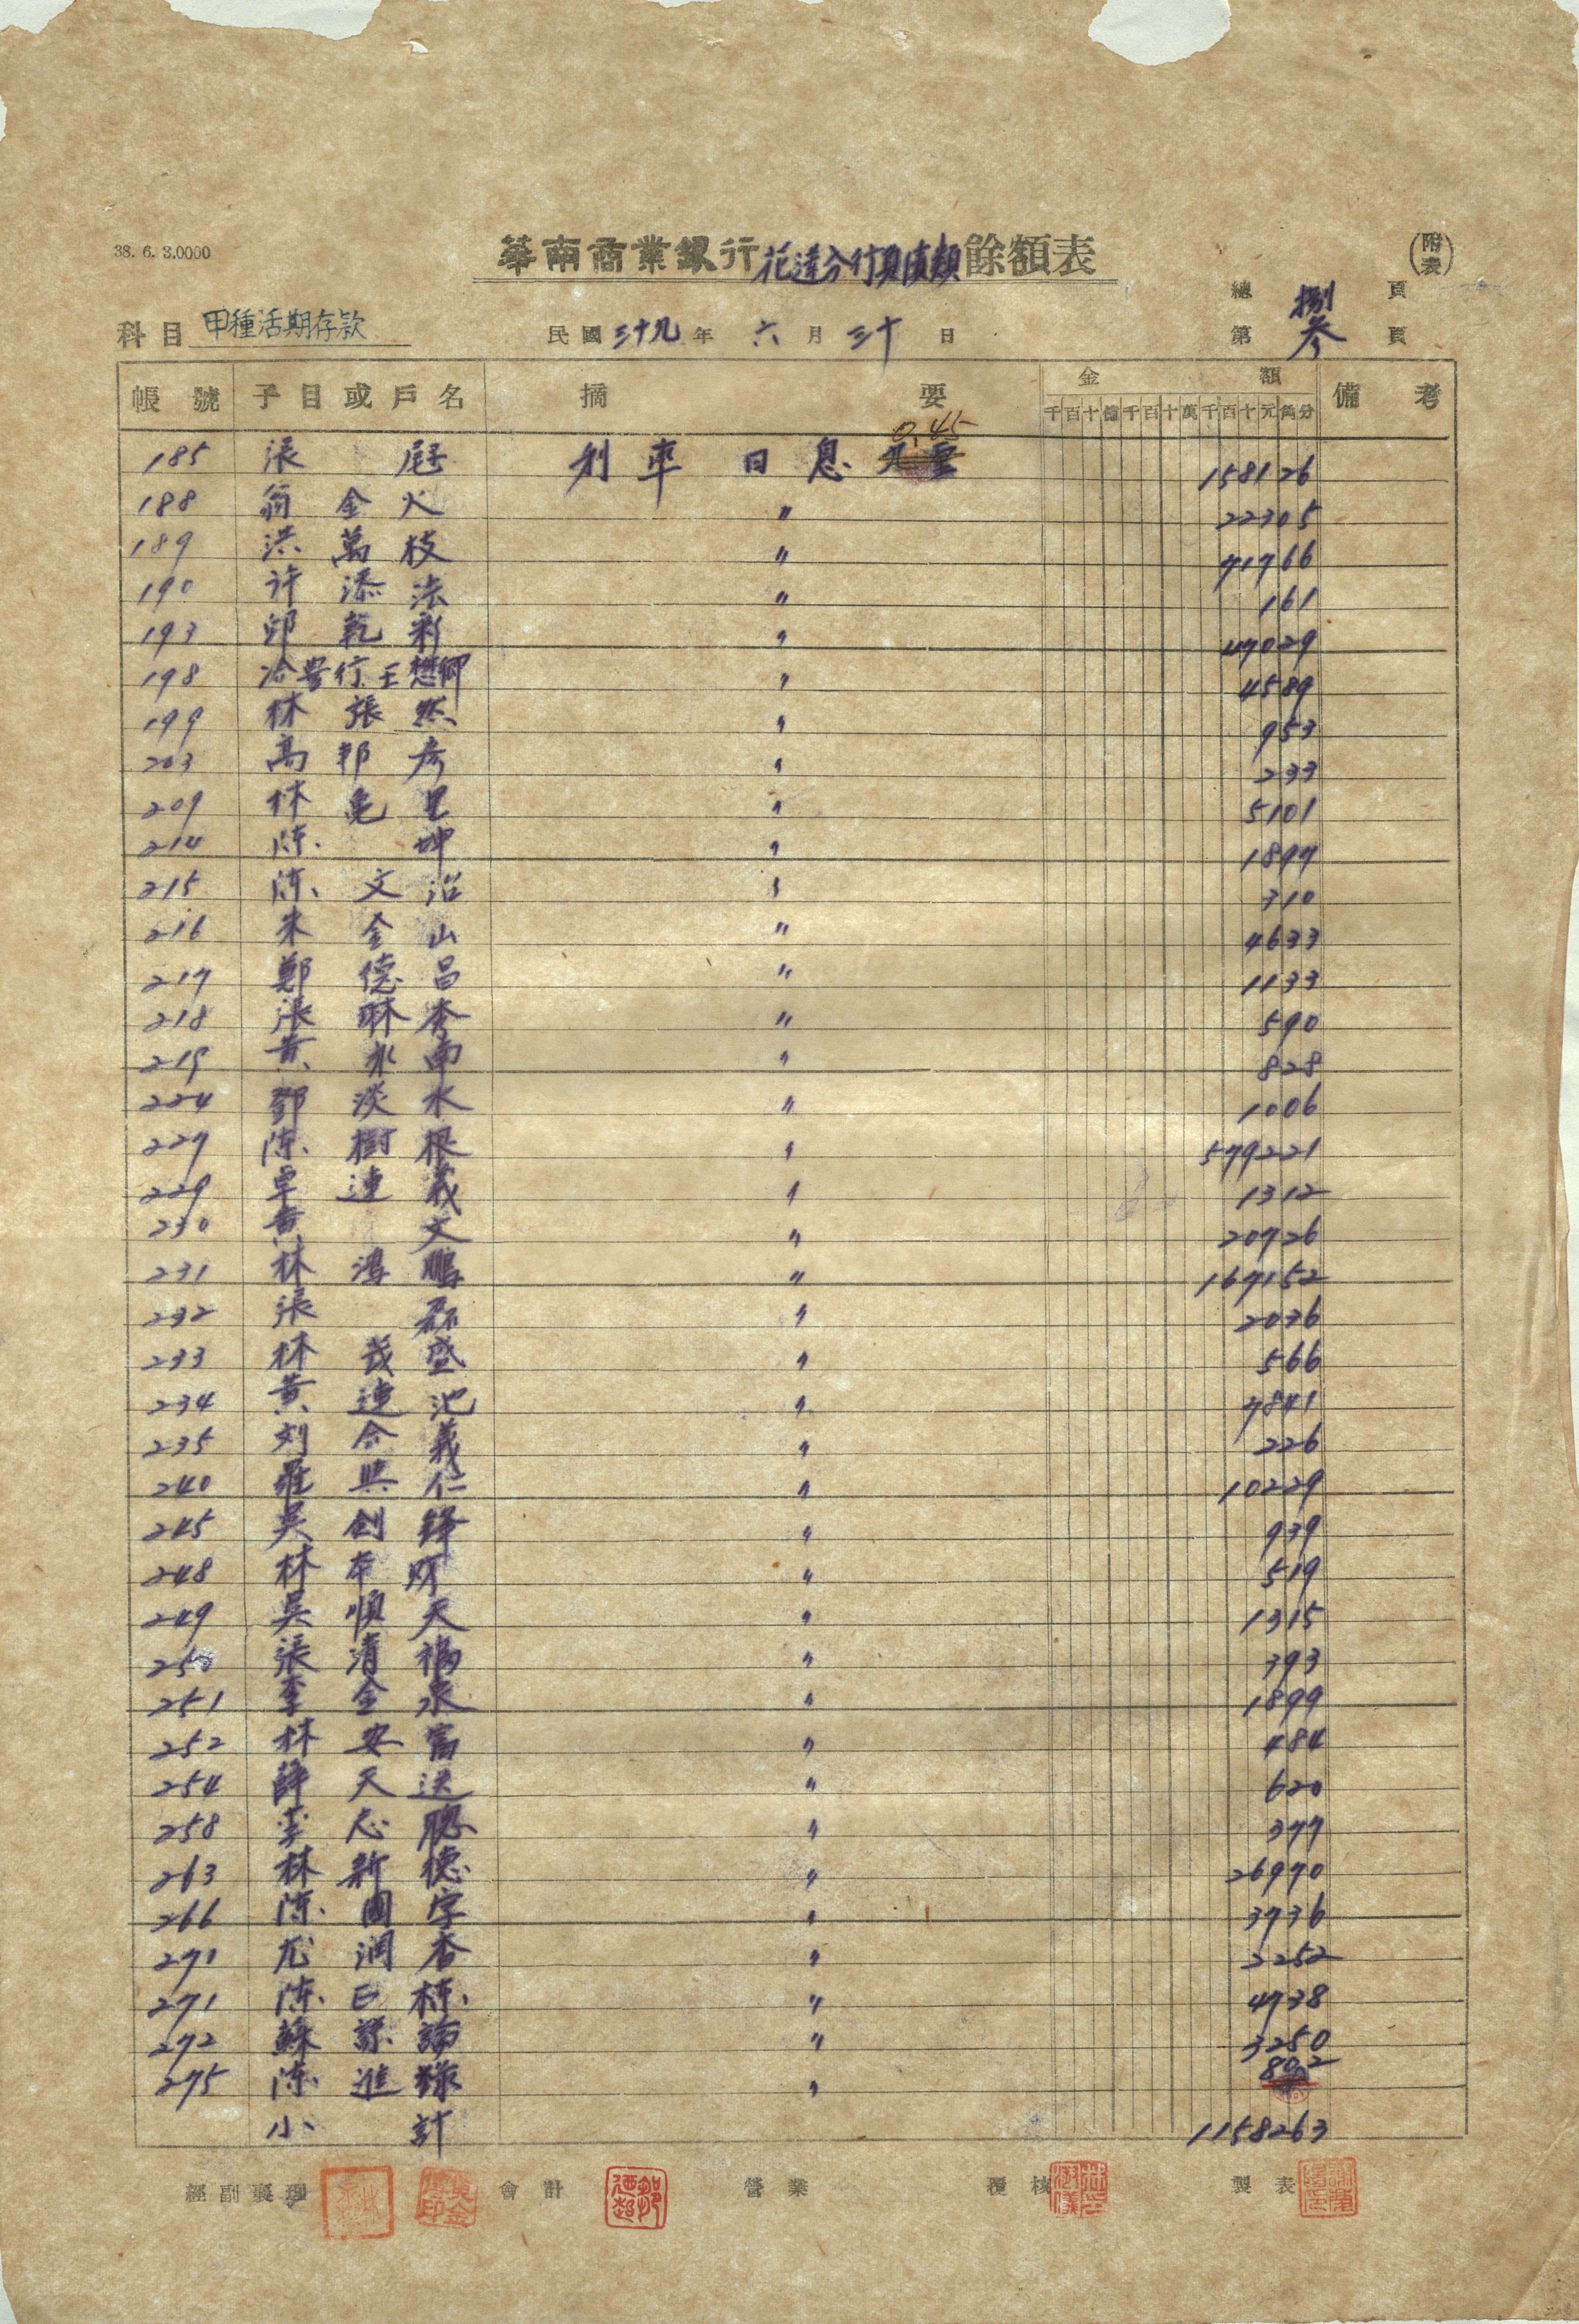 38. 6. 3.0000
華南商業銀行花蓮分行負債類餘額表
(附表)
總 捌 頁
科目 甲種活期存款 民國三十九年 六月三十日 第 叁 頁
帳號 子目或戶名 摘要 金額 備考
千百十億千百十萬千百十元角分
0.45
185 張 利率 日息 158126
188 翁金火 〃 22305
189 洪萬枝 〃 71766
190 許添法 〃 161
193 邱乾彩 〃 47029
198 王懋卿 〃 4589
199 林張然 〃 953
203 高邦彥 〃 233
209 林龟里 〃 5101
214 陈坤 〃 1897
215 陈文沼 〃 310
216 朱金山 〃 4633
217 鄭德昌 〃 1133
218 張秀 〃 590
219 黄水南 〃 828
224 鄧淡水 〃 1006
227 陈樹根 〃 579221
229 卓連義 〃 1312
230 黄文 〃 20726
231 林鴻鵬 〃 167152
232 張磊 〃 2036
233 林茂盛 〃 566
234 黄連池 〃 7841
235 刘合義 〃 226
240 羅興仁 〃 10229
245 吳創鋒 〃 939
248 林本財 〃 519
249 吳順天 〃 1315
250 張清福 〃 393
251 李金泉 〃 1899
252 林安富 〃 484
254 薛天送 〃 620
258 李志聰 〃 377
263 林新德 〃 26970
266 陈國字 〃 3736
271 尤潤香 〃 2252
271 陈巨標 〃 4738
272 蘇謀論 〃 3250
275 陈進録 〃 802
小計 1158263
經副襄理 會計 營業 覆核 製表